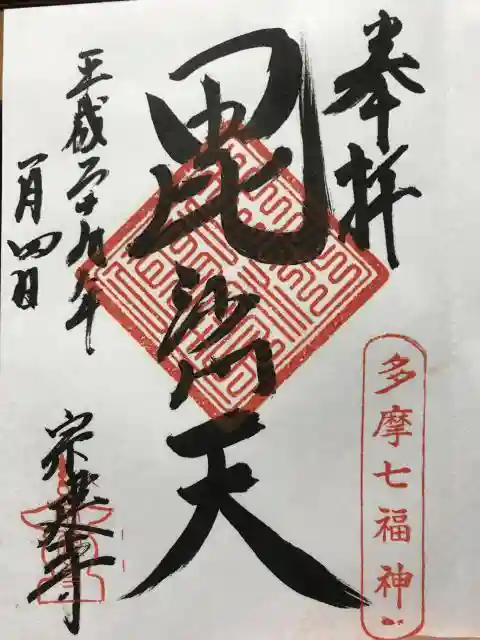 奉拝
多摩七福神
毘沙門天
平成二十九年
一月四日